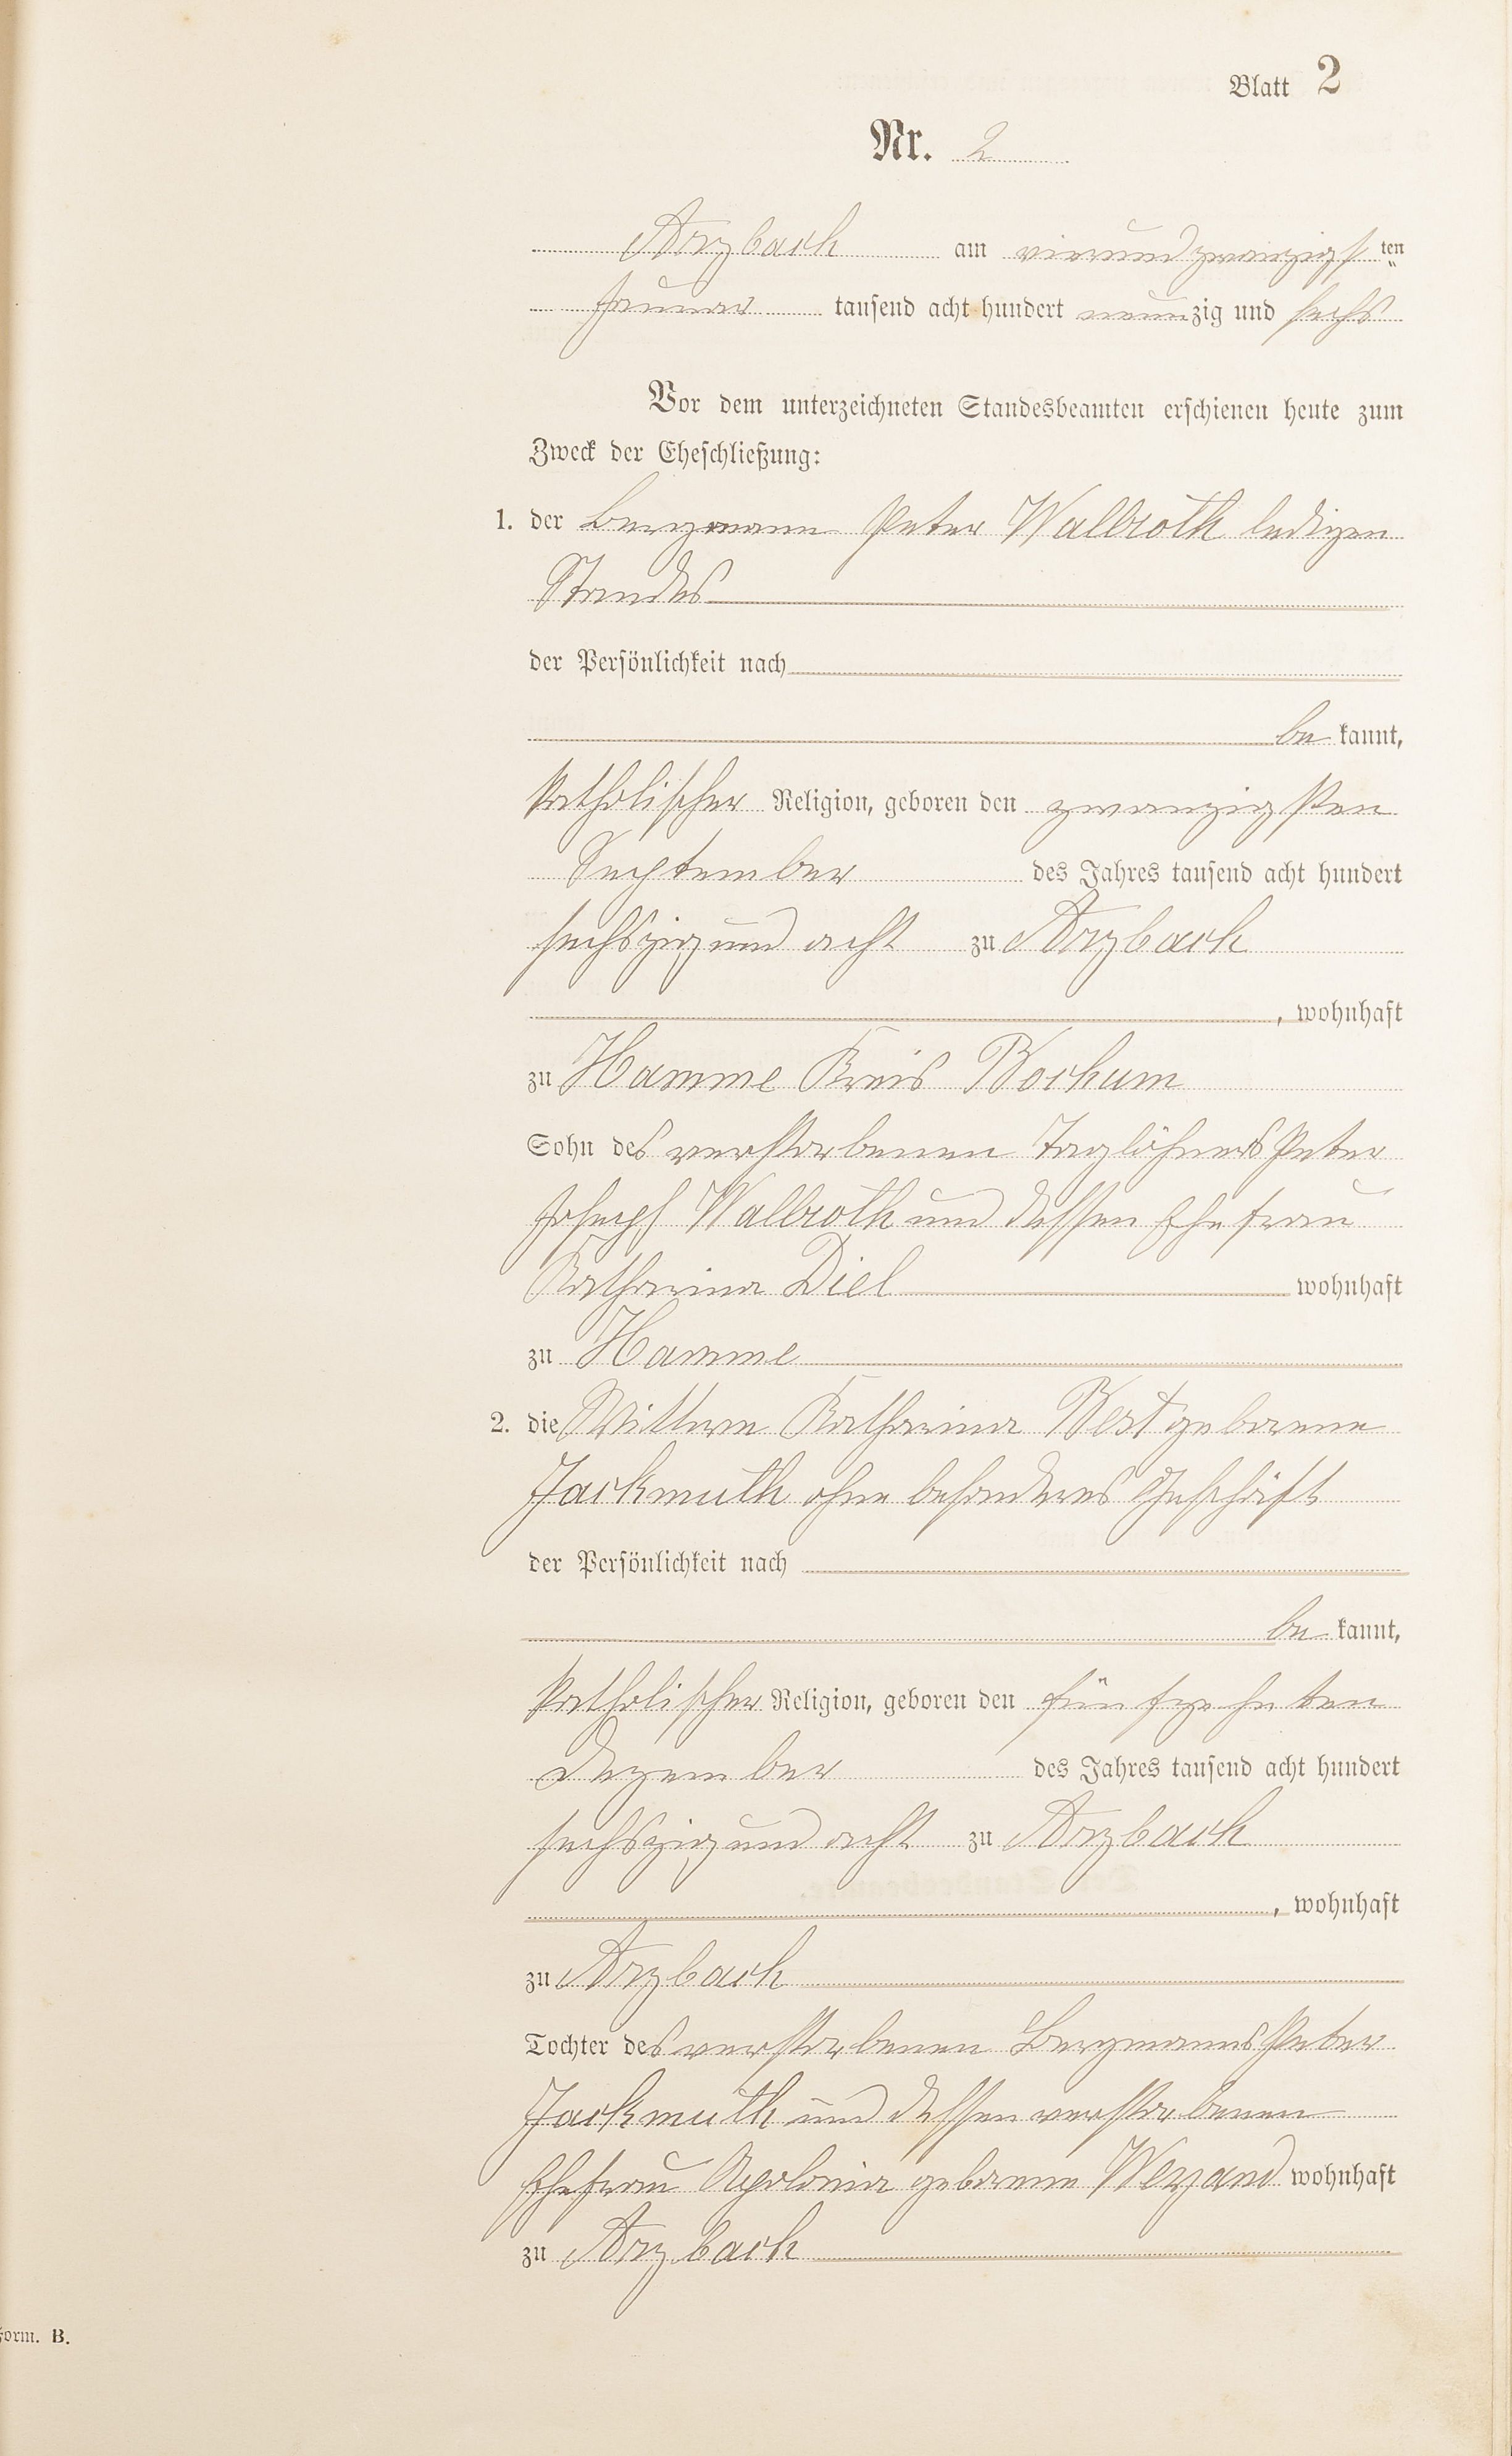 Blatt 2
Nr. 2
Arzbach am vierundzwanzigsten
Januar tausend acht hundert neunzig und sechs
Vor dem unterzeichneten Standesbeamten erschienen heute zum
Zweck der Eheschließung:
1. der Bergmann Peter Wallroth ledigen
Standes
der Persönlichkeit nach
be kannt,
katholischer Religion, geboren den zwanzigsten
September des Jahres tausend acht hundert
sechszig und acht zu Arzbach
, wohnhaft
zu Hamme Kreis Bochum
Sohn des verstorbenen Taglöhners Peter
Joseph Wallroth und dessen Ehefrau
Katharina Diel wohnhaft
zu Hamme
2. die Wittwe Katharina Best geborene
Jackmuth ohne besonderes Geschäft
der Persönlichkeit nach
be kannt,
katholischer Religion, geboren den fünfzehnten
Dezember des Jahres tausend acht hundert
sechszig und acht zu Arzbach
, wohnhaft
zu Arzbach
Tochter des verstorbenen Bergmanns Peter
Jackmuth und dessen verstorbenen
Ehefrau Apolonia geborene Weyand wohnhaft
zu Arzbach
Form. B.